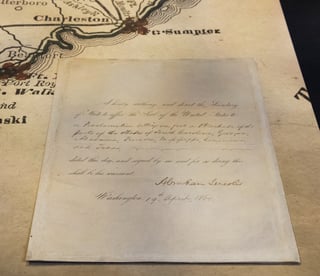 Charleston
Ft. Sumpter
Port Roy
Ft. Walk
nd
aski
I hereby authorize and direct the Secretary
of State to affix the Seal of the United States to
a Proclamation setting on foot a Blockade of the
ports of the States of South Carolina, Georgia,
Alabama, Florida, Mississippi, Louisiana
and Texas
dated this day, and signed by me and for so doing this
shall be his warrant.
Abraham Lincoln
Washington 19th April, 1861.